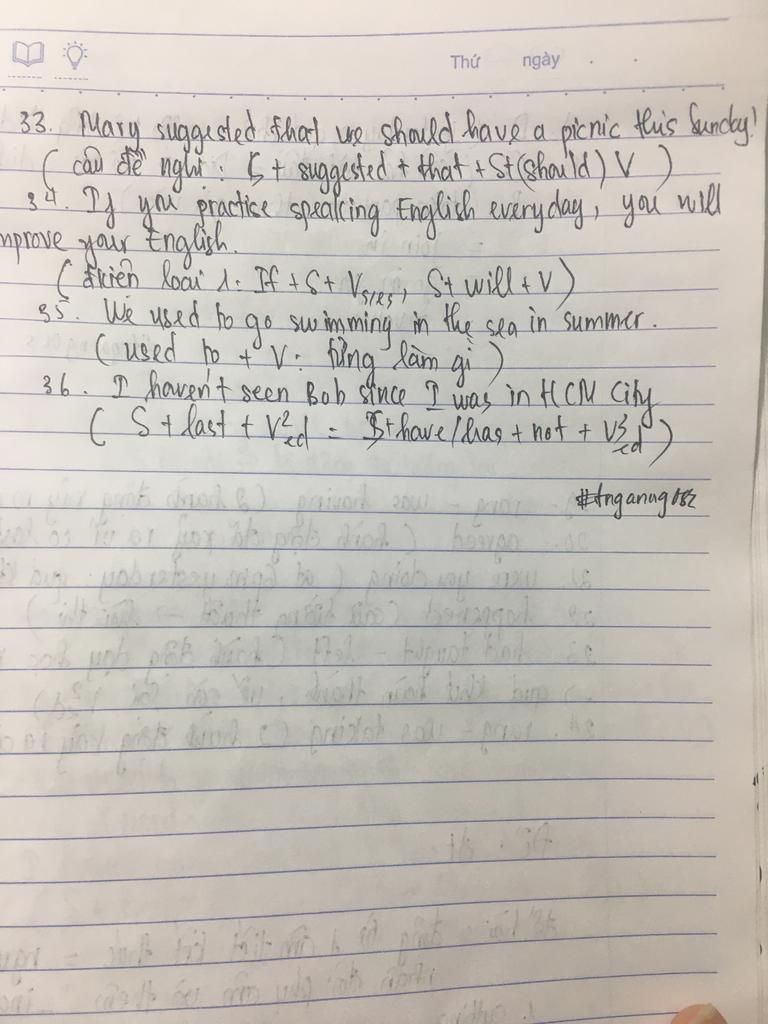 Thứ ngày
33. Mary suggested that we should have a picnic this Sunday!
( câu đề nghị : S + suggested + that + S+(should) V )
34. If you practise speaking English everyday, you will
mprove your English.
( đkiện loại 1: If + S + Vs/es, S + will + V )
35. We used to go swimming in the sea in summer.
( used to + V : từng làm gì )
36. I haven't seen Bob since I was in HCM City
( S + last + V2ed = S + have/has + not + V3ed )